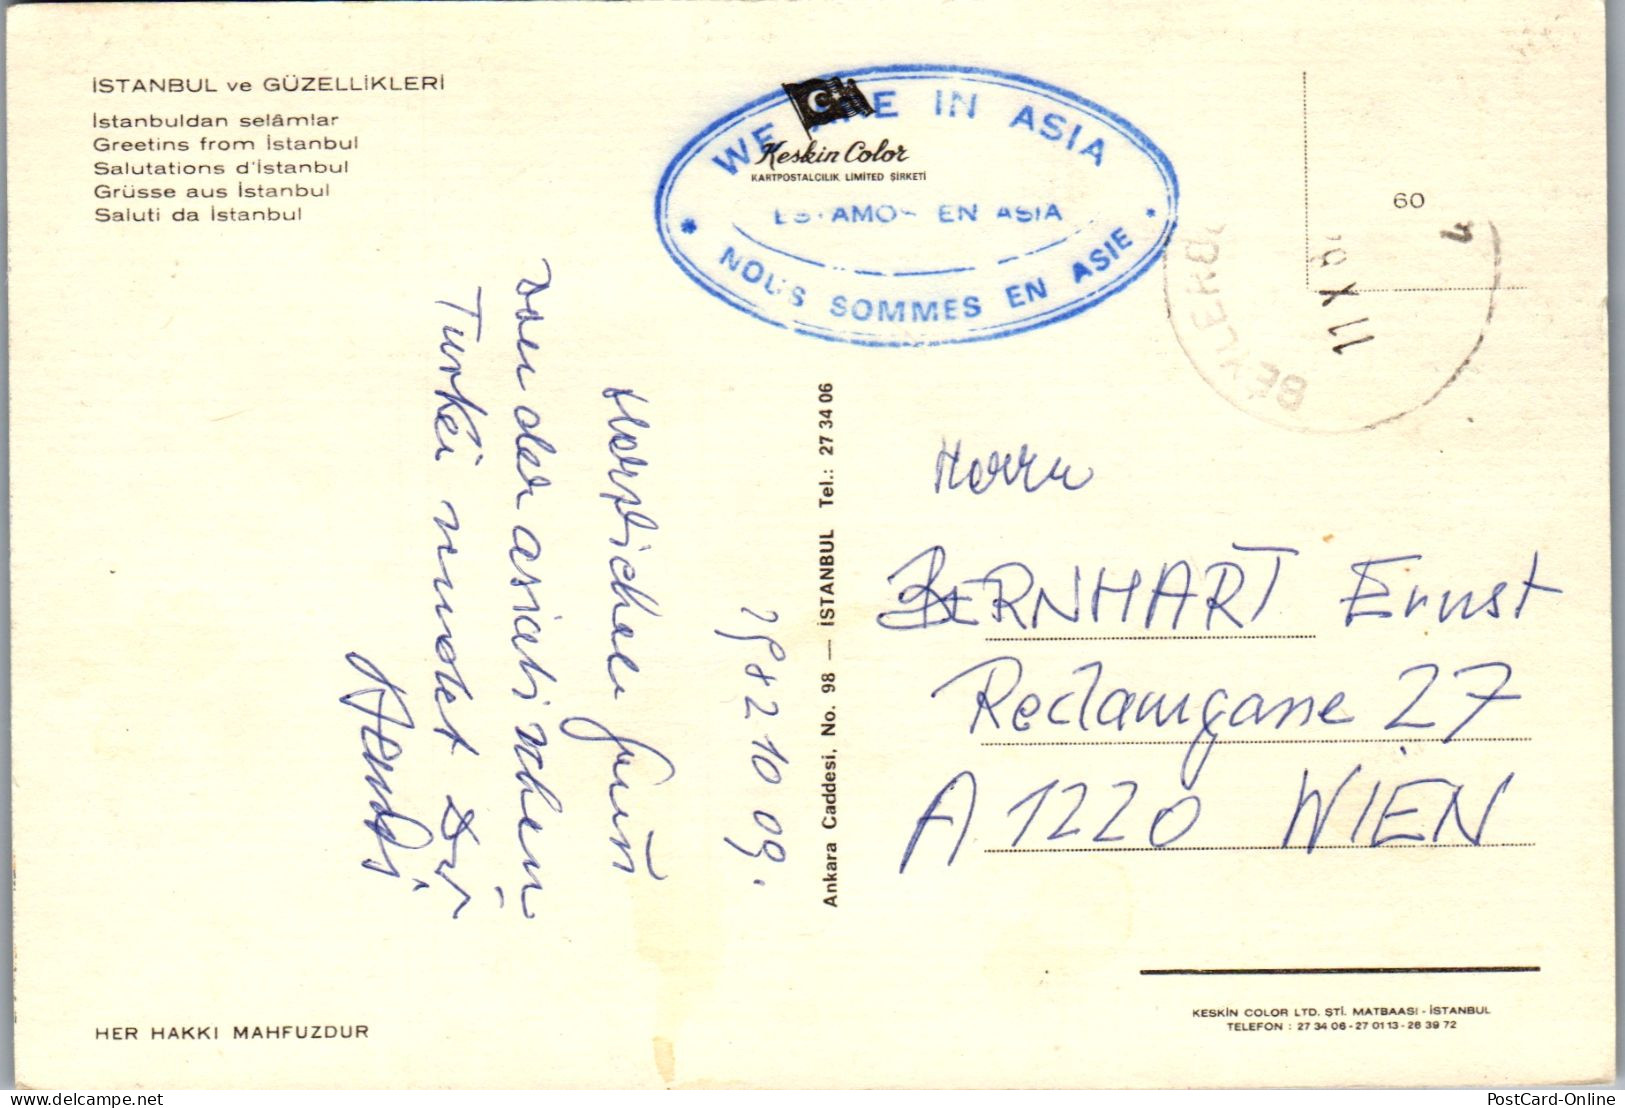 İSTANBUL ve GÜZELLİKLERİ
İstanbuldan selâmlar
Greetins from İstanbul
Salutations d'İstanbul
Grüsse aus İstanbul
Saluti da İstanbul
WE ARE IN ASIA
Keskin Color
KARTPOSTALCILIK LIMITED ŞİRKETİ
ESTAMOS EN ASIA
NOUS SOMMES EN ASIE
60
BEYLERB
11 X
1982 10 09.
Herzlichen Gruß
von der asiatischen
Türkei sendet Dir
Ankara Caddesi. No. 98 — İSTANBUL Tel.: 27 34 06
Herrn
BERNHART Ernst
Reclamgasse 27
A 1220 WIEN
HER HAKKI MAHFUZDUR
KESKİN COLOR LTD. ŞTİ. MATBAASI - İSTANBUL
TELEFON : 27 34 06 - 27 01 13 - 28 39 72
PostCard-Online